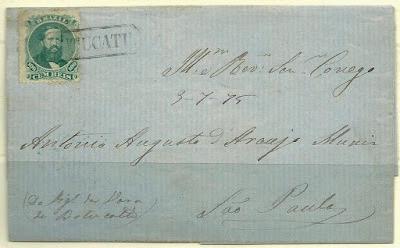 BRAZIL
CEM REIS
UCATU
Illmo e Revmo Snr Conego
3-7-75
Antonio Augusto d'Araujo Muniz
São Paulo
(Do Vigr da Vara
de Botucatú)